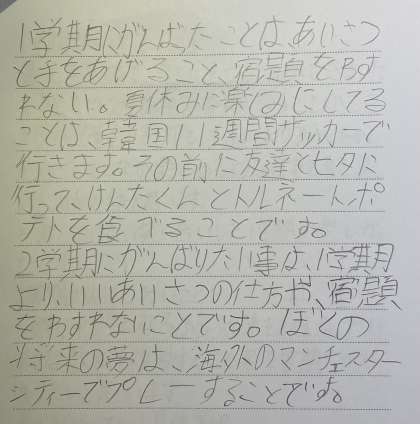 1学期にがんばたことは、あいさつ
と手をあげること、宿題をわす
れない。夏休みに楽しみにしてる
ことは、韓国11週間サッカーで
行きます。その前に友達と七夕に
行って、けんたくんとトルネートポ
テトを食べることです。
2学期にがんばりたい事は、1学期
より、いいあいさつの仕方や、宿題
をわすれないことです。ぼくの
将来の夢は、海外のマンチェスター
シティーでプレーすることです。